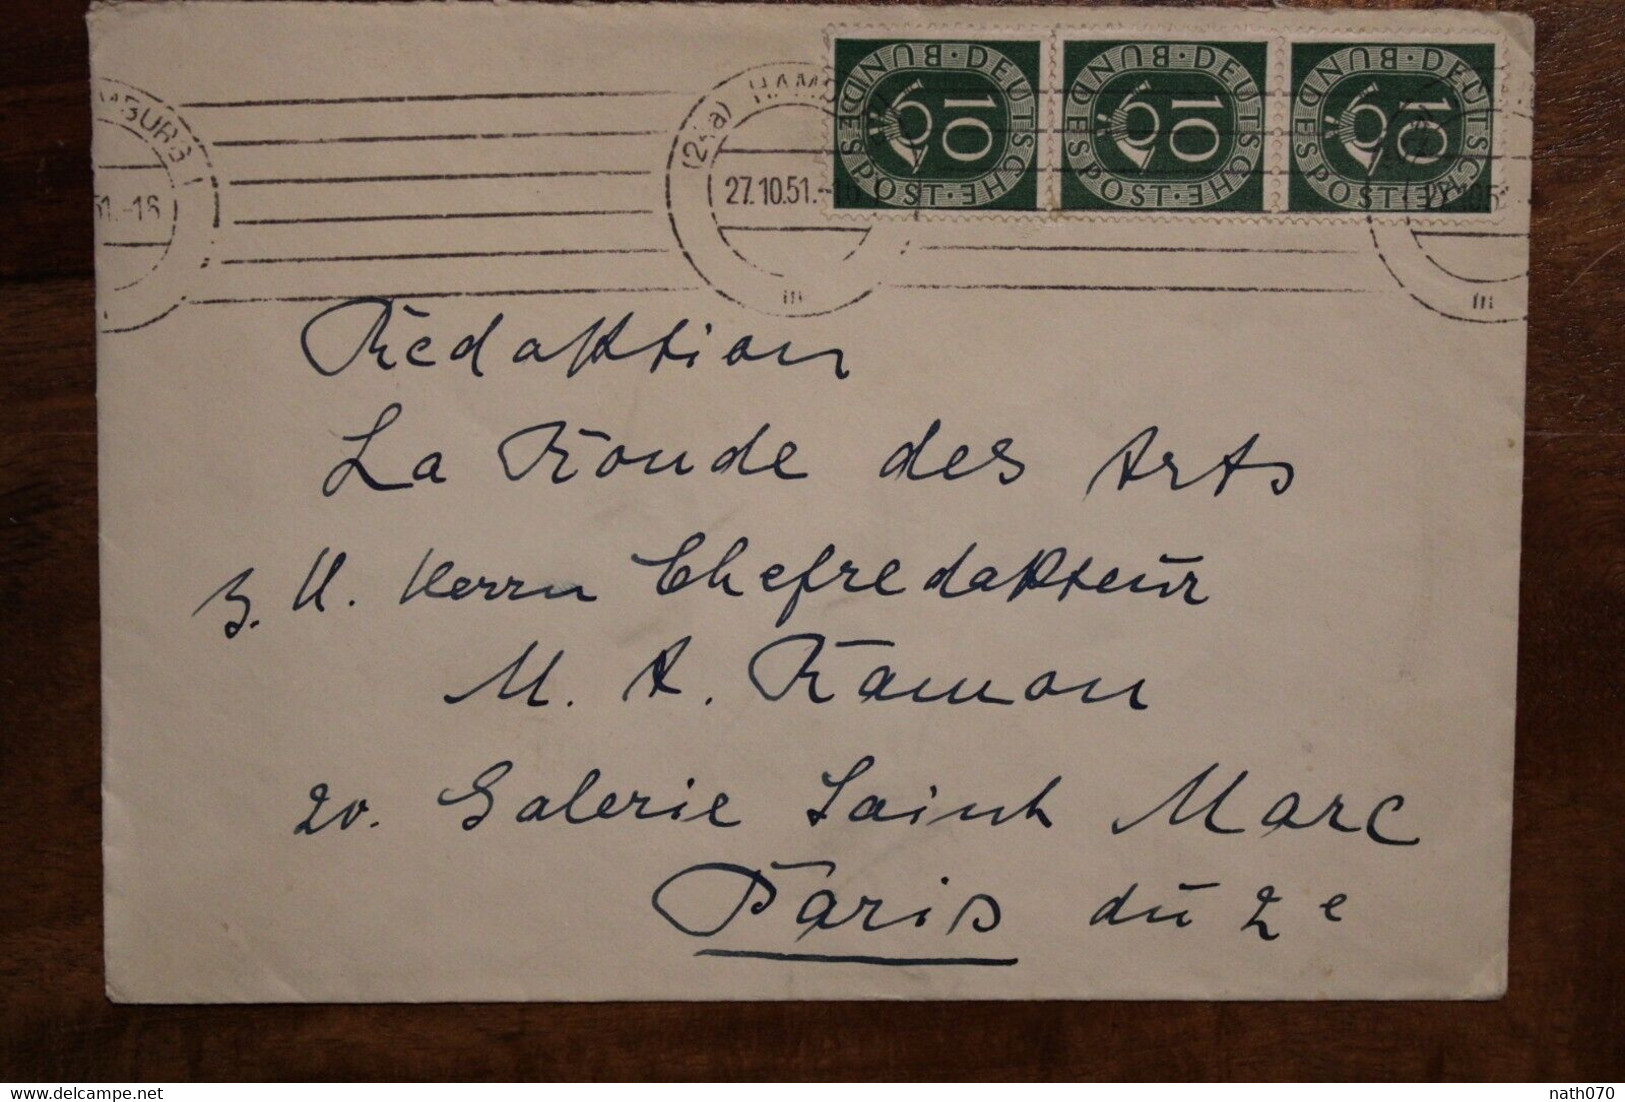 MBURG 1
51.-16
(24a) HAMB
27.10.51.-16
m
DEUTSCHE BUNDESPOST
10
DEUTSCHE BUNDESPOST
10
DEUTSCHE BUNDESPOST
10
m
Redaktion
La Ronde des Arts
z. H. Herrn Chefredakteur
M. A. Ramon
20. Galerie Saint Marc
Paris du 2e
delcampe.net
nath070